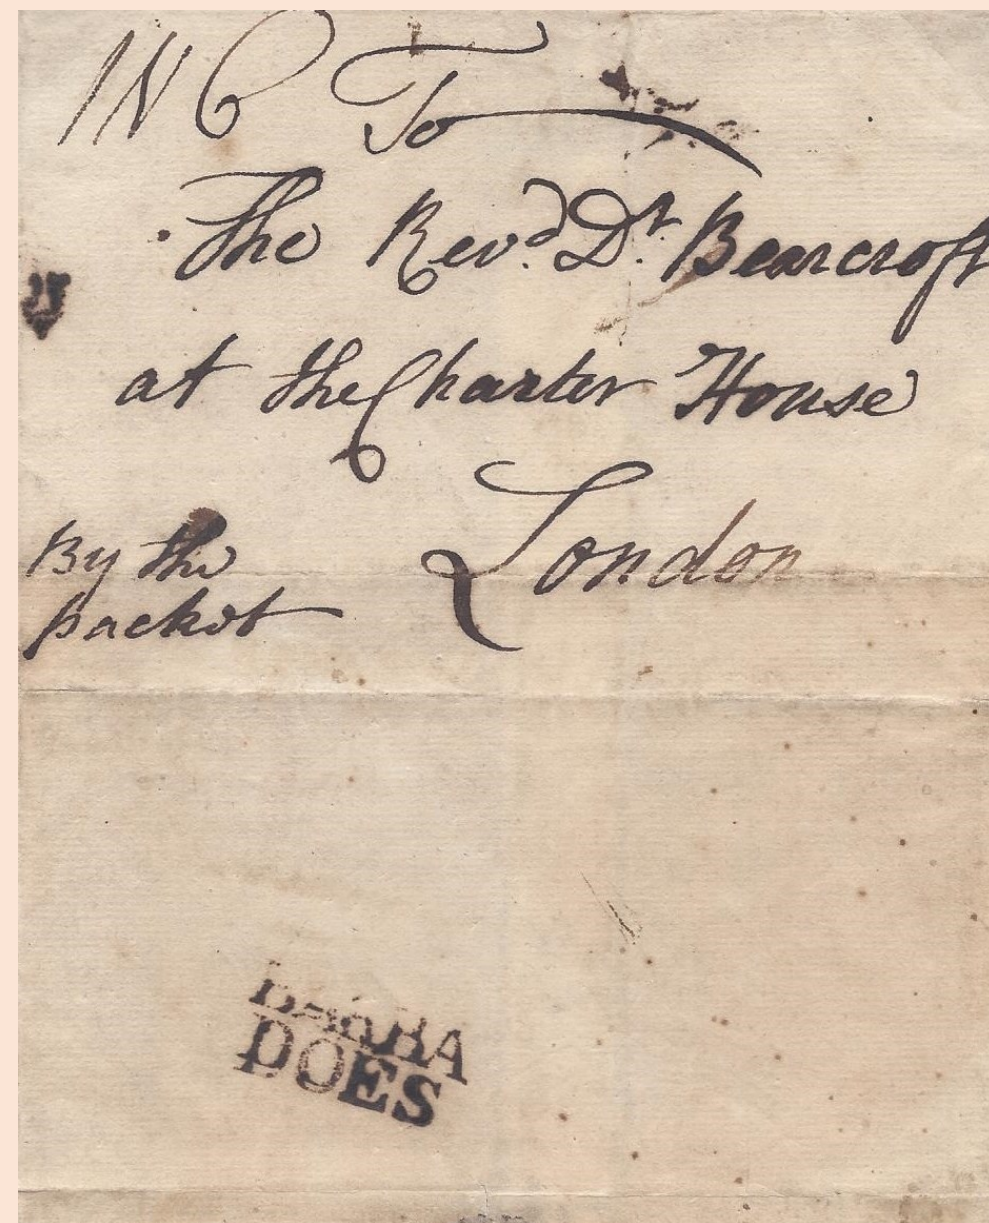 IN6 To
The Revd. Dr. Bearcroft
at the Charter House
London
By the
packet
BARBA
DOES